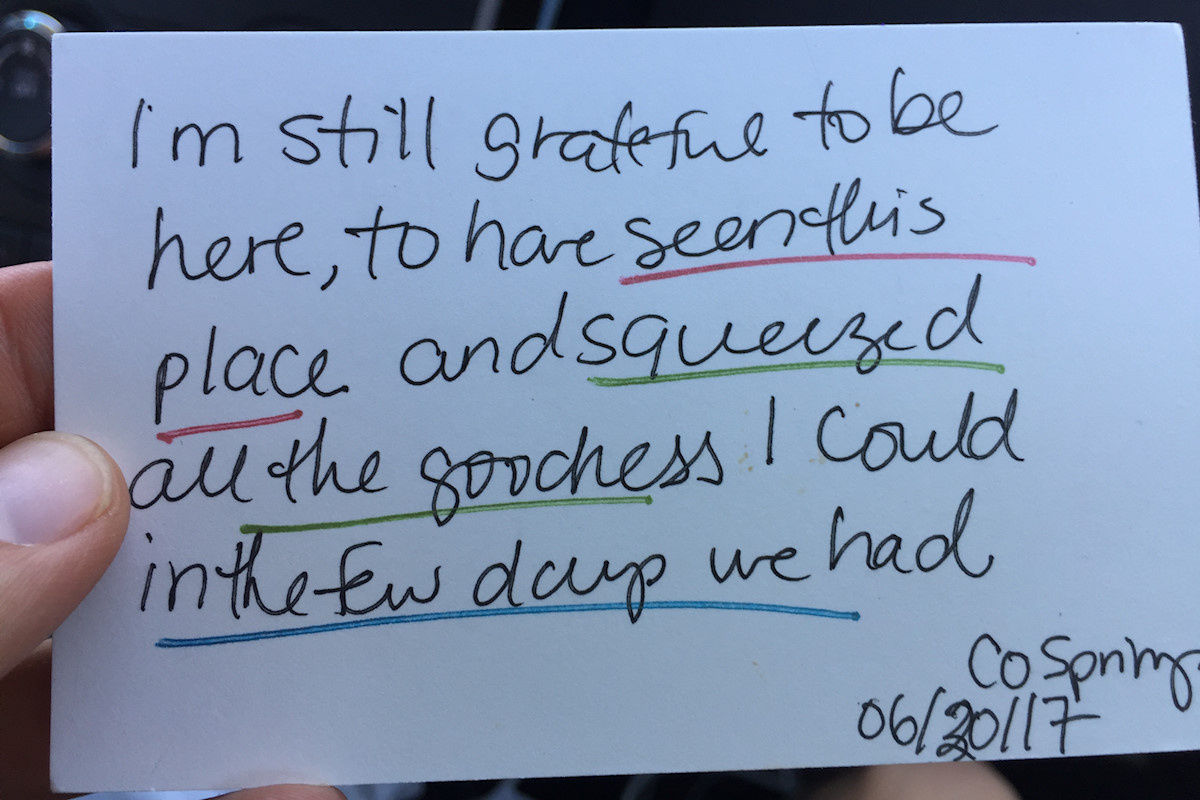 I'm still grateful to be
here, to have seen this
place and squeezed
all the goodness I could
in the few days we had
CO Springs
06/20/17